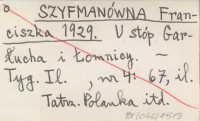 SZYFMANÓWNA Fran-
ciszka 1929. U stóp Gar-
łucha i Łomnicy. —
Tyg. Il. , nr 4: 67, il.
Tatra. Polanka itd.